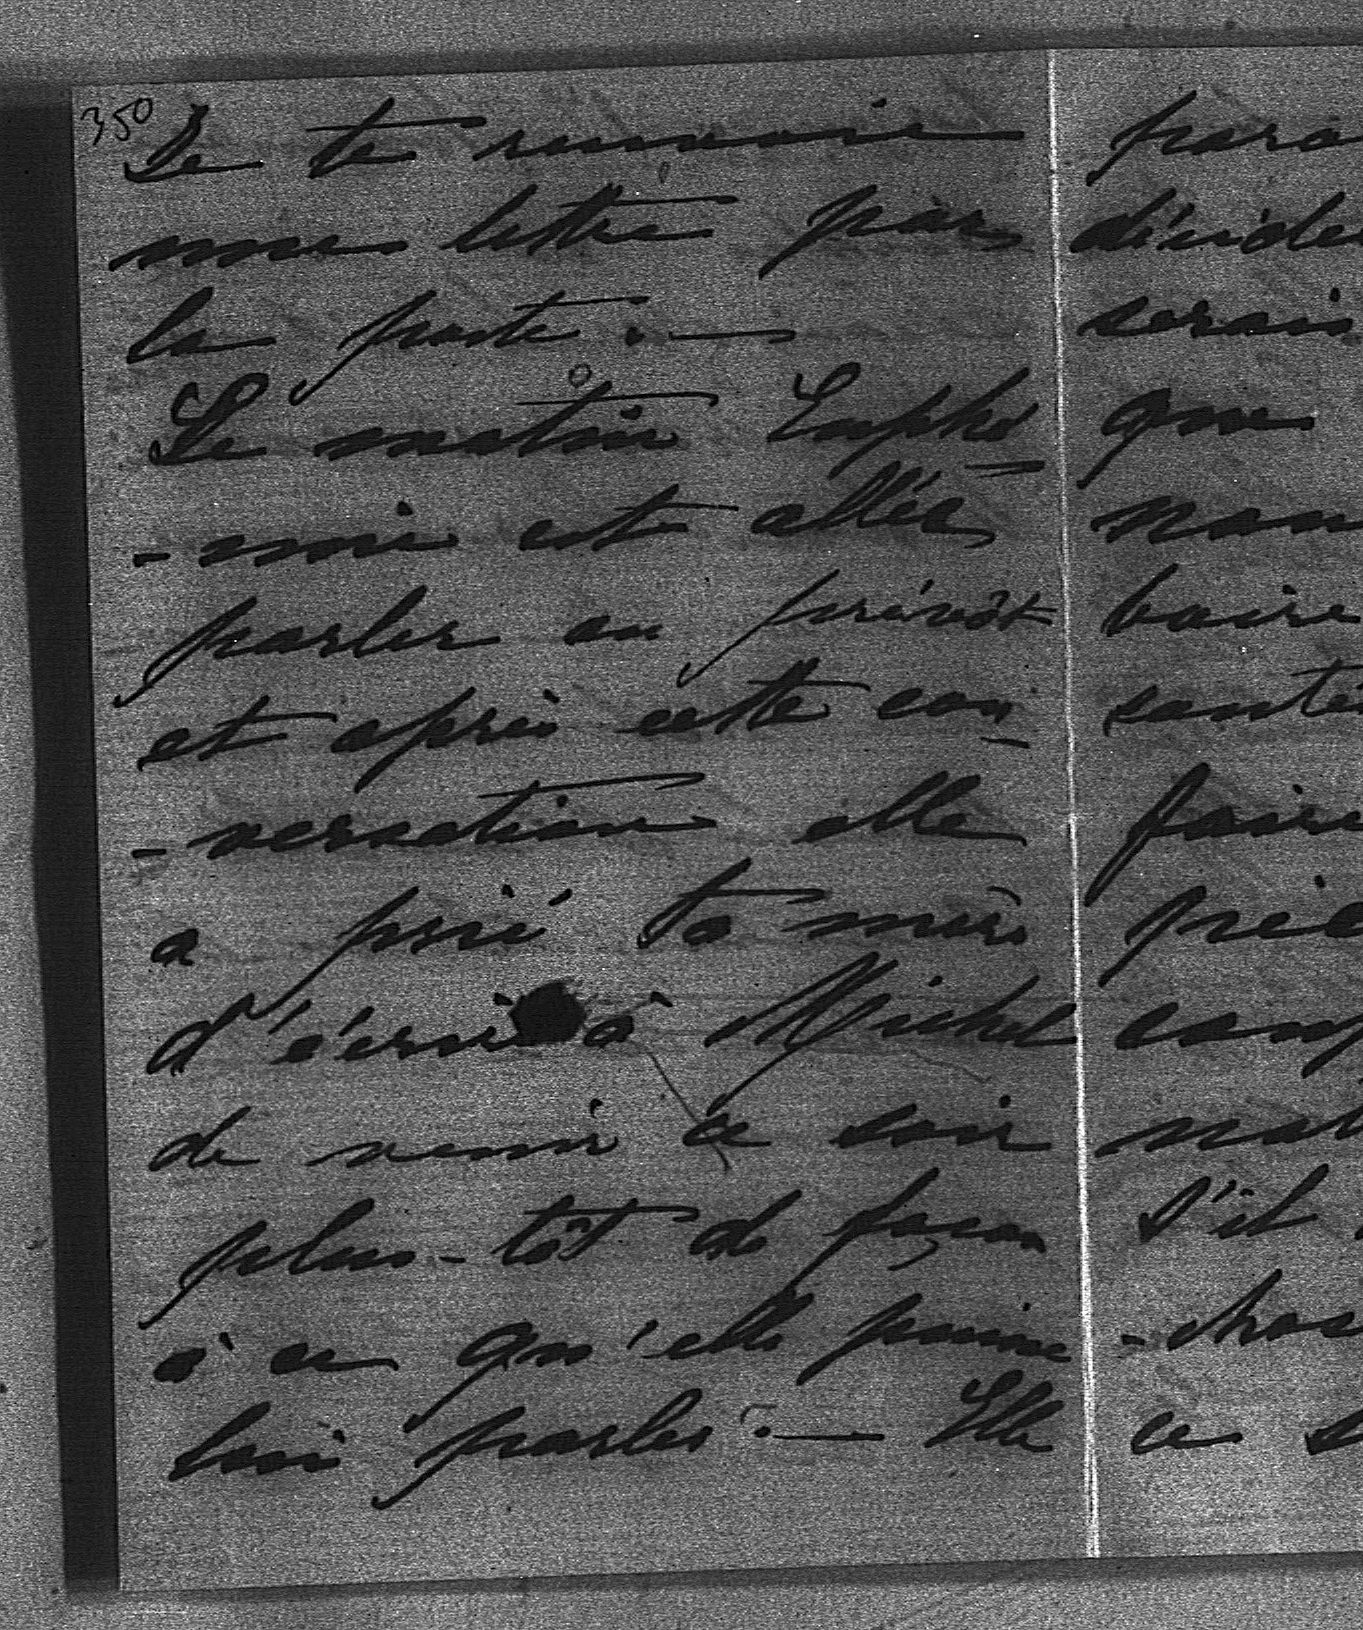 350
Je te renvoie
une lettre par
la poste. —
Ce matin Euphé
-mie est allée
parler au prévôt
et après cette con
-versation elle
a prié ta mère
d'écrire à Michel
de venir ce soir
plus-tôt de façon
à ce qu'elle puisse
lui parler. — Elle
paro
décider
serais
que
non
boire
santé
faire
piè
comp
mat
s'il
-chos
ce s